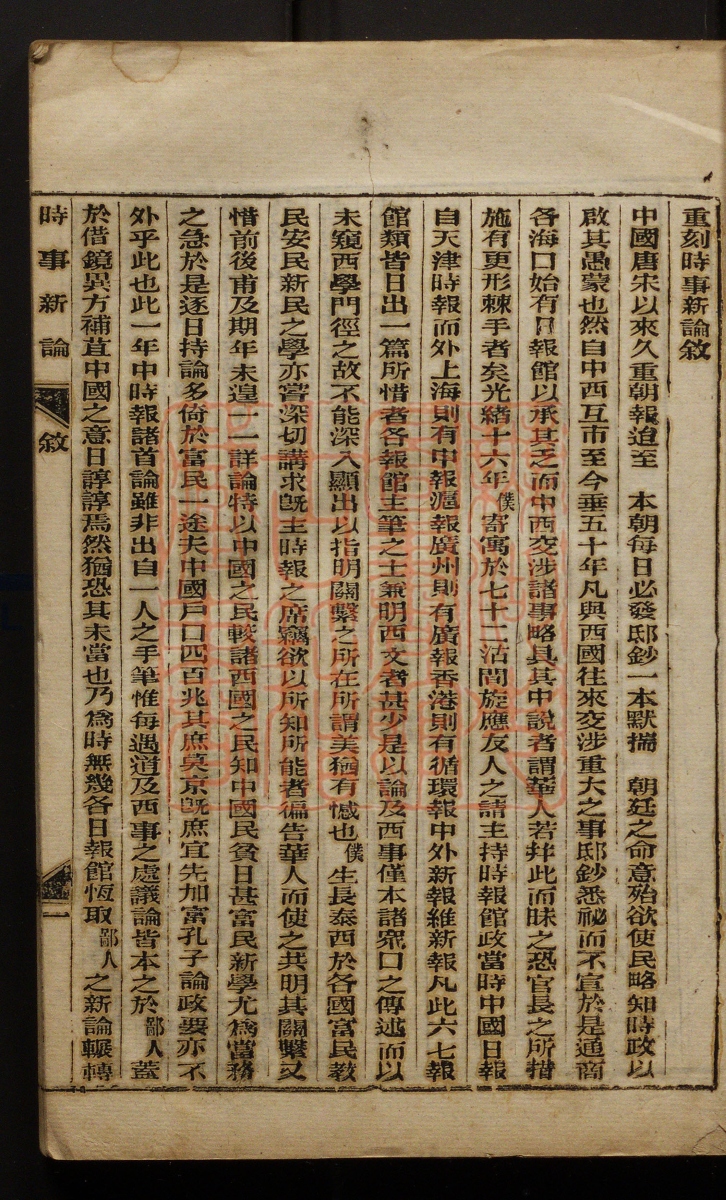 重刻時事新論敘
中國唐宋以來久重朝報迨至 本朝每日必發邸鈔一本默揣 朝廷之命意殆欲使民略知時政以
啟其愚蒙也然自中西互市至今垂五十年凡與西國往來交涉重大之事邸鈔悉祕而不宣於是通商
各海口始有日報館以承其乏而中西交涉諸事略具其中說者謂華人若并此而昧之恐官長之所措
施有更形棘手者矣光緒十六年僕寄寓於七十二沽間旋應友人之請主持時報館政當時中國日報
自天津時報而外上海則有申報滬報廣州則有廣報香港則有循環報中外新報維新報凡此六七報
館類皆日出一篇所惜者各報館主筆之士兼明西文者甚少是以論及西事僅本諸眾口之傳述而以
未窺西學門徑之故不能深入顯出以指明關繫之所在所謂美猶有憾也僕生長泰西於各國富民教
民安民新民之學亦嘗深切講求旣主時報之席竊欲以所知所能者徧告華人而使之共明其關繫又
惜前後甫及期年未遑一一詳論特以中國之民較諸西國之民知中國民貧日甚富民新學尤爲當務
之急於是逐日持論多倚於富民一途夫中國戶口四百兆其庶莫京旣庶宜先加富孔子論政要亦不
外乎此也此一年中時報諸首論雖非出自一人之手筆惟每遇道及西事之處議論皆本之於鄙人蓋
於借鏡異方補苴中國之意日諄諄焉然猶恐其未當也乃爲時無幾各日報館恆取鄙人之新論輾轉
時事新論 敘 一